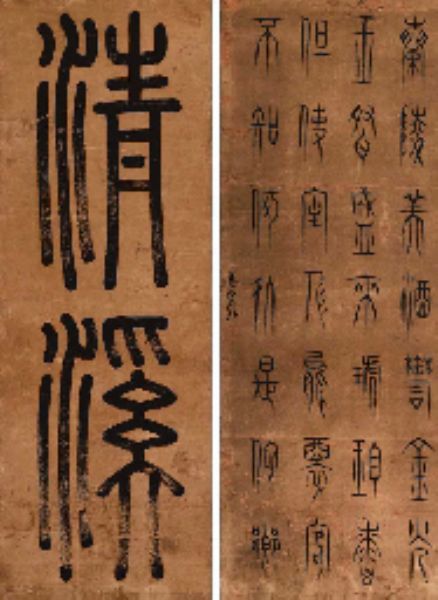 清溪
蘭陵美酒鬱金光
玉盌盛來琥珀香
但使主人能醉客
不知何処是他鄉